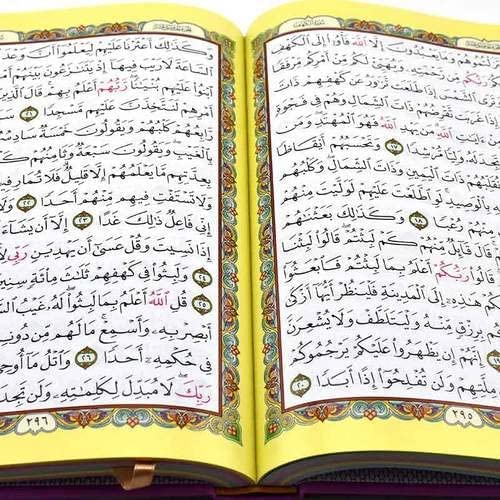 وَمَا يَعْبُدُونَ إِلَّا ٱللَّهَ فَأْوُۥٓا۟ إِلَى ٱلْكَهْفِ
مِّن رَّحْمَتِهِۦ وَيُهَيِّئْ لَكُم مِّنْ أَمْرِكُم مِّرْفَقًا
إِذَا طَلَعَت تَّزَٰوَرُ عَن كَهْفِهِمْ ذَاتَ
غَرَبَت تَّقْرِضُهُمْ ذَاتَ ٱلشِّمَالِ وَهُمْ فِى فَجْوَةٍ
ٱللَّهِ مَن يَهْدِ ٱللَّهُ فَهُوَ ٱلْمُهْتَدِ وَمَن
لَهُۥ وَلِيًّا مُّرْشِدًا ١٧ وَتَحْسَبُهُمْ أَيْقَاظًا
ذَاتَ ٱلْيَمِينِ وَذَاتَ ٱلشِّمَالِ وَكَلْبُهُم
بِٱلْوَصِيدِ لَوِ ٱطَّلَعْتَ عَلَيْهِمْ لَوَلَّيْتَ مِنْهُمْ
مِنْهُمْ رُعْبًا ١٨ وَكَذَٰلِكَ بَعَثْنَٰهُمْ
قَالَ قَآئِلٌ مِّنْهُمْ كَمْ لَبِثْتُمْ قَالُوا۟ لَبِثْنَا
قَالُوا۟ رَبُّكُمْ أَعْلَمُ بِمَا لَبِثْتُمْ فَٱبْعَثُوٓا۟
هَٰذِهِۦٓ إِلَى ٱلْمَدِينَةِ فَلْيَنظُرْ أَيُّهَآ أَزْكَىٰ
بِرِزْقٍ مِّنْهُ وَلْيَتَلَطَّفْ وَلَا يُشْعِرَنَّ
إِنَّهُمْ إِن يَظْهَرُوا۟ عَلَيْكُمْ يَرْجُمُوكُمْ
مِلَّتِهِمْ وَلَن تُفْلِحُوٓا۟ إِذًا أَبَدًا ٢٠
٢٩٥
وَكَذَٰلِكَ أَعْثَرْنَا عَلَيْهِمْ لِيَعْلَمُوٓا۟ أَنَّ وَعْدَ
ٱلسَّاعَةَ لَا رَيْبَ فِيهَآ إِذْ يَتَنَٰزَعُونَ بَيْنَهُمْ
ٱبْنُوا۟ عَلَيْهِم بُنْيَٰنًا رَّبُّهُمْ أَعْلَمُ بِهِمْ قَالَ ٱلَّذِينَ
أَمْرِهِمْ لَنَتَّخِذَنَّ عَلَيْهِم مَّسْجِدًا ٢١
رَّابِعُهُمْ كَلْبُهُمْ وَيَقُولُونَ خَمْسَةٌ سَادِسُهُمْ
بِٱلْغَيْبِ وَيَقُولُونَ سَبْعَةٌ وَثَامِنُهُمْ
بِعِدَّتِهِم مَّا يَعْلَمُهُمْ إِلَّا قَلِيلٌ فَلَا تُمَارِ فِيهِمْ
وَلَا تَسْتَفْتِ فِيهِم مِّنْهُمْ أَحَدًا ٢٢
إِنِّى فَاعِلٌ ذَٰلِكَ غَدًا ٢٣ إِلَّآ أَن يَشَآءَ
إِذَا نَسِيتَ وَقُلْ عَسَىٰٓ أَن يَهْدِيَنِ رَبِّى
٢٤ وَلَبِثُوا۟ فِى كَهْفِهِمْ ثَلَٰثَ مِا۟ئَةٍ سِنِينَ
٢٥ قُلِ ٱللَّهُ أَعْلَمُ بِمَا لَبِثُوا۟ لَهُۥ غَيْبُ
أَبْصِرْ بِهِۦ وَأَسْمِعْ مَا لَهُم مِّن دُونِهِۦ
فِى حُكْمِهِۦٓ أَحَدًا ٢٦ وَٱتْلُ مَآ أُوحِىَ
رَبِّكَ لَا مُبَدِّلَ لِكَلِمَٰتِهِۦ وَلَن تَجِدَ
٢٩٦